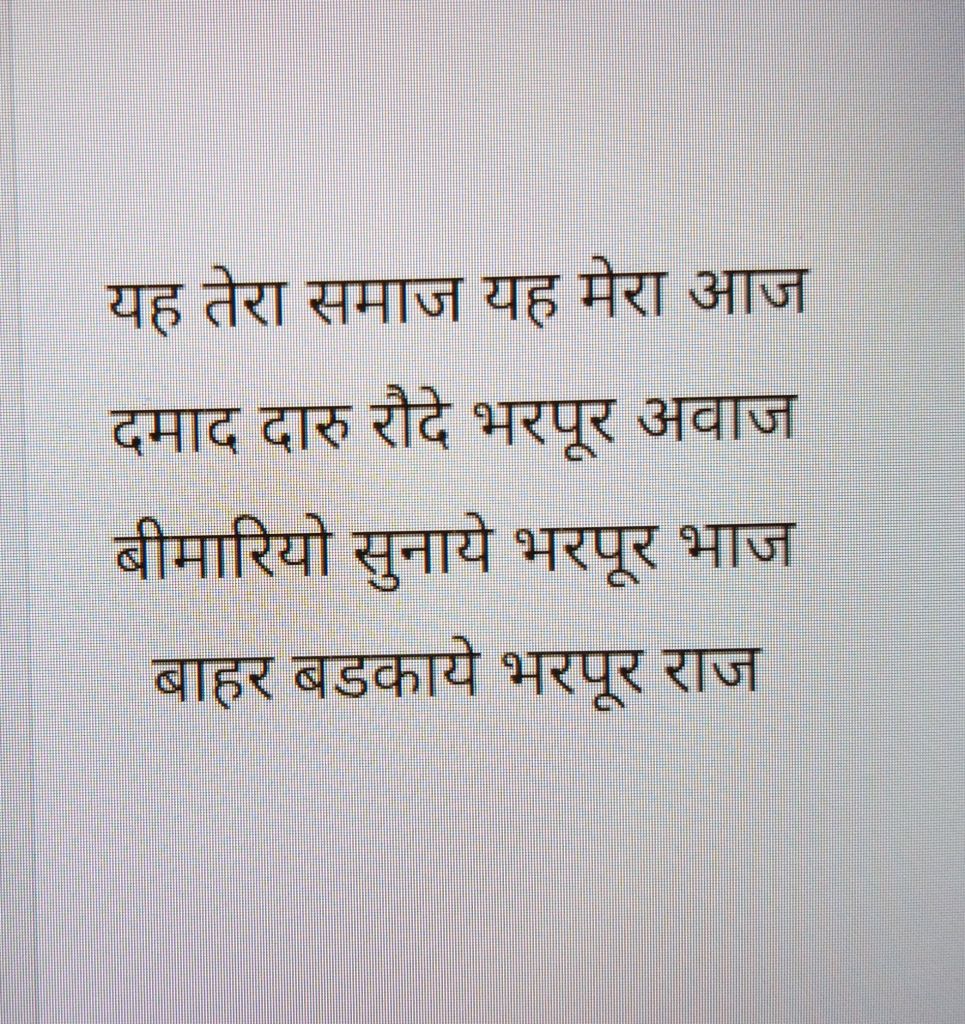 यह तेरा समाज यह मेरा आज
दमाद दारु रौदे भरपूर अवाज
बीमारियो सुनाये भरपूर भाज
बाहर बडकाये भरपूर राज